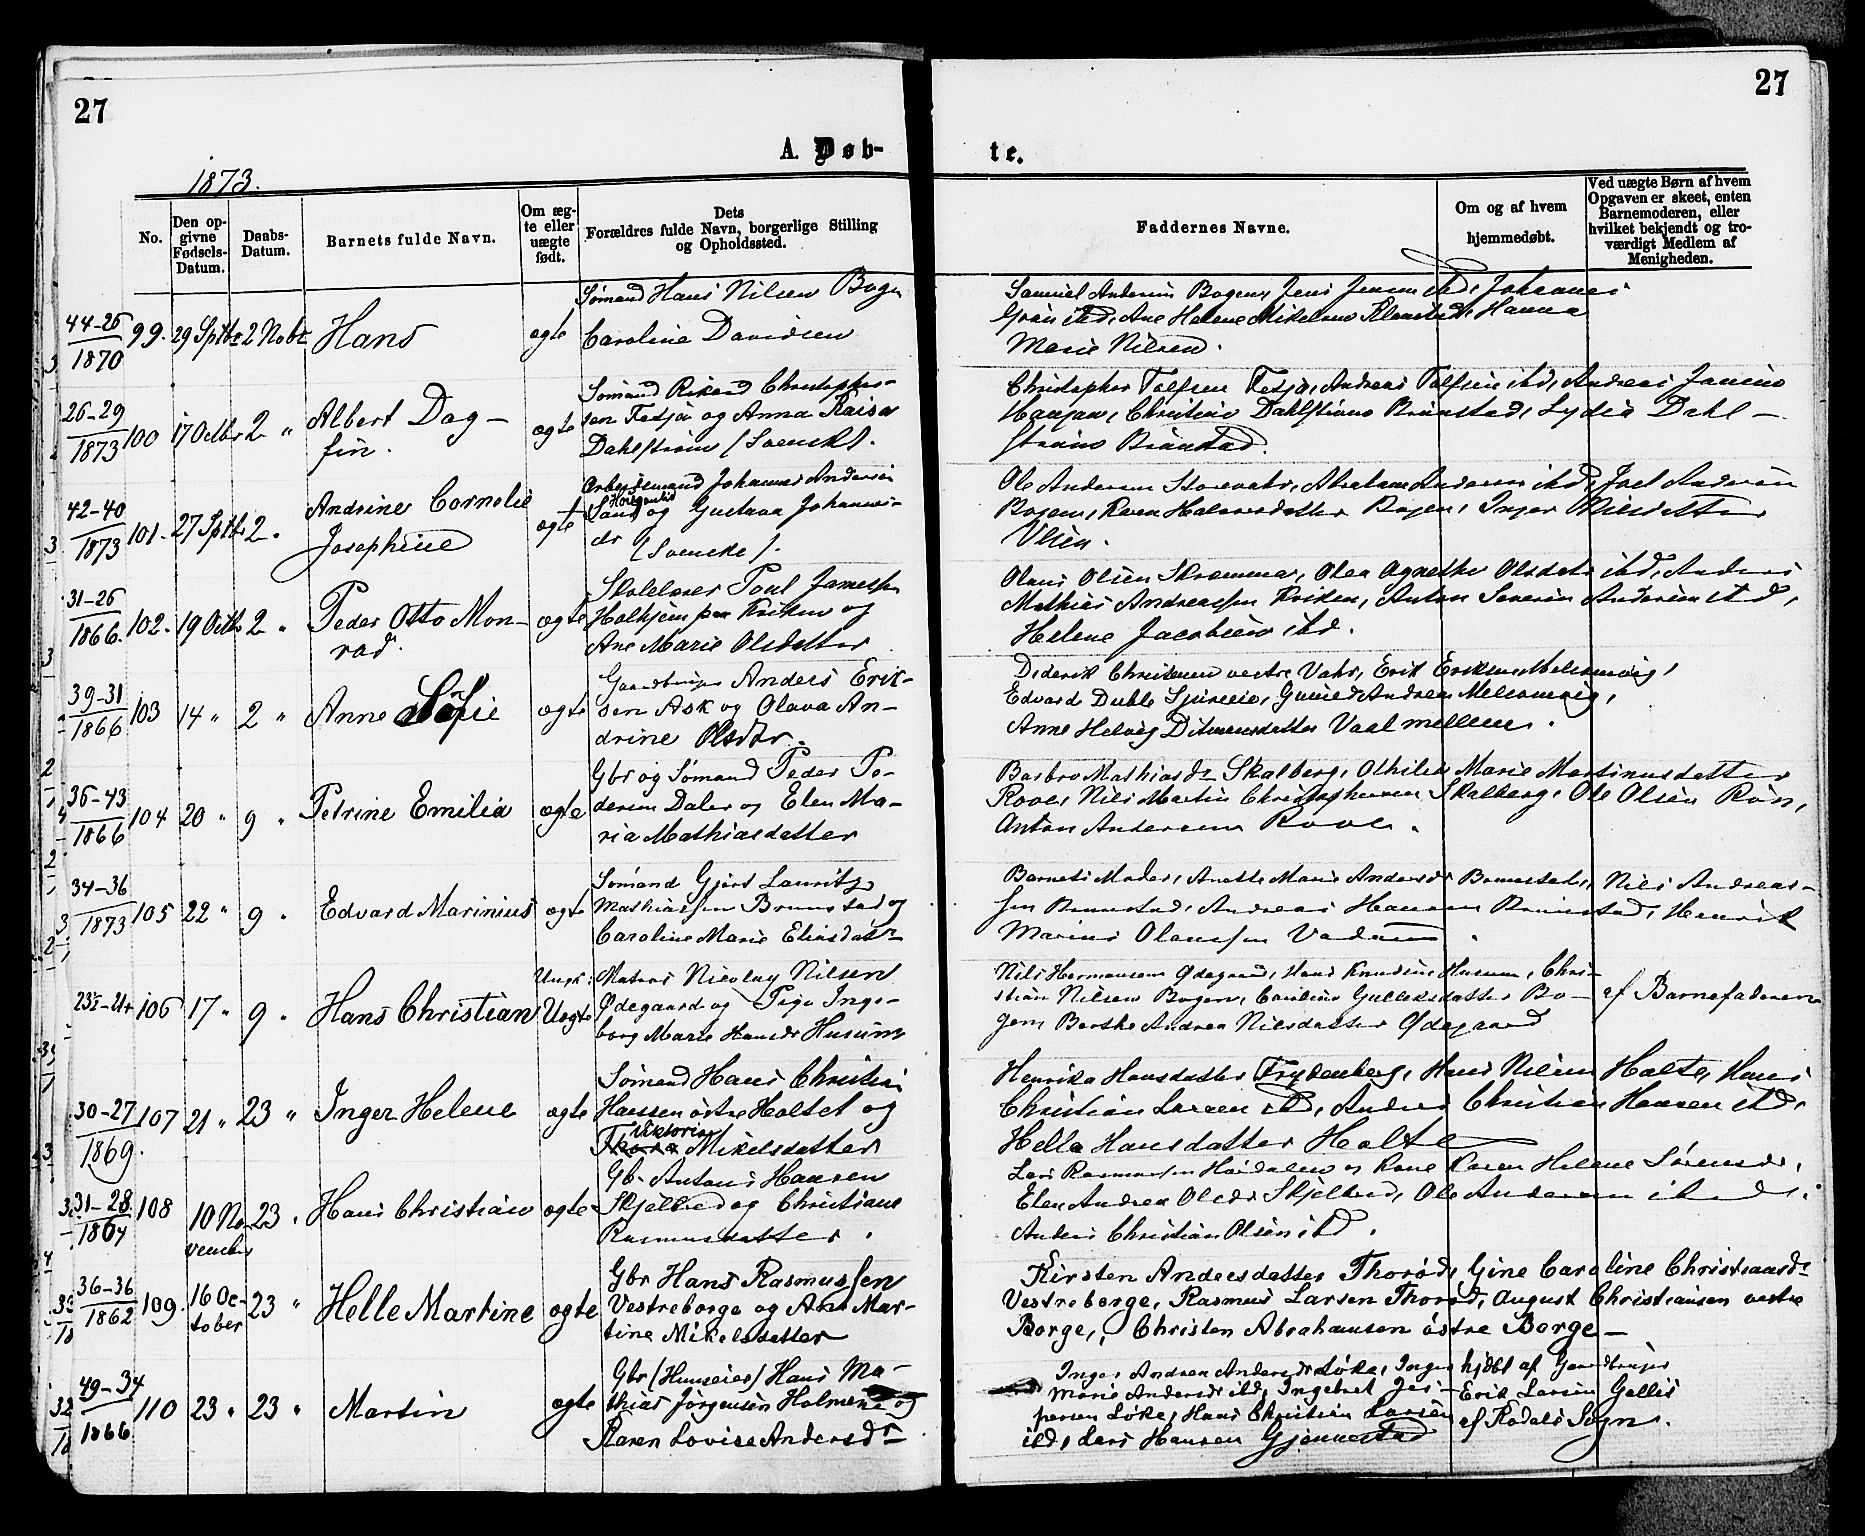 27
27
A. Døb-
te.
1873.
No.
Den op-
givne
Fødsels-
Datum.
Daabs-
Datum.
Barnets fulde Navn.
Om æg-
te eller
uægte
født.
Dets
Forældres fulde Navn, borgerlige Stilling
og Opholdssted.
Faddernes Navne.
Om og af hvem
hjemmedøbt.
Ved uægte Børn af hvem
Opgaven er skeet, enten
Barnemoderen, eller
hvilket bekjendt og tro-
værdigt Medlem af
Menigheden.
44-26
1870
99. 29 Sptbr 2 Nobr Hans ægte
Sømand Hans Nilsen Bogen
Caroline Davidsen
Samuel Andersen Bogen, Jens Jensen ibd, Johannes
Grøn ibd, Ane Helene Mikelsen, Hanna
Marie Nilsen.
26-29
1873
100 17 Octbr 2 " Albert Dag-
fin. ægte
Sømand Rikard Christopher-
sen Fedsjø og Anna Kaisa
Dahlstrøm (Svensk).
Christopher Tolfsen Fedsjø, Andreas Tolfsen ibd, Andreas
Haugen, Christine Dahlstrøm Brunstad, Lydia Dahl-
strøm Brunstad.
42-40
1873
101. 27 Sptbr 2 " Andrine Cornelie
Josephine ægte
Arbeidsmand Johannes Andersen
og Gustava Johannes-
dr (Svenske).
Ole Andersen, Abraham Andersen ibd, Joel Andersen
Bogen, Karen Halvorsdatter Bogen, Inger Nilsdatter
31-26
1866.
102. 19 Octbr 2 " Peder Otto Mon-
rad. ægte
Skolelærer Poul Jamessen
Holhjem paa Kviken og
Ane Marie Olsdatter
Olaus Olsen Skramma, Olea Agnethe Olsdatr ibd, Anders
Mathias Andreassen Kviken, Anton Severin Andersen ibd,
Helene Jacobsen ibd.
39-31
1866
103 14 " 2 " Anne Sofie ægte
Gaardbruger Anders Erik-
sen Ask og Olava An-
drine Olsdtr.
Diderik Christensen vestre Vahr, Erik Eriksen Melsomvig,
Edvard Duble, Andrea Melsomvig,
Anne Helvig Ditmansdatter Vaal mellem.
36-43
1866
104 20 " 9 " Petrine Emilia ægte
Gbr og Sømand Peder Pe-
dersen Daler og Elen Ma-
ria Mathiasdatter
Barbro Mathiasdr Skalberg, Othilie Marie Martinusdatter
Rove, Nils Martin Christophersen Skalberg, Ole Olsen Røn,
Anton Andersen Rove.
34-36
1873
105 22 " 9 " Edvard Marinius ægte
Sømand Gjert Lauritz
Mathiassen Brunstad og
Caroline Marie Eliasdatr
Barnets Moder, Anette Marie Andersdr Brunstad, Nils Andreas-
sen Brunstad, Andreas Hansen Brunstad, Henrik
Marius Olaussen
106 17 " 9 " Hans Christian Uægte
Ungk: Matros Nicolay Nilsen
Ødegaard og Pige Inge-
borg Marie Hansdr Husum
Nils Hermansen Ødegaard, Hans Knudsen Husum, Chri-
stian Nilsen Bogen, Caroline Gulleksdatter Bo-
gen Berthe Andrea Nilsdatter Ødegaard
af Barnefaderen
30-27
1869.
107 21 " 23 " Inger Helene ægte
Sømand Hans Christian
Hanssen østre Holtet og
Viktoria
Thora Mikelsdatter
Henrika Hansdatter Frydenberg, Hans Nilsen Holte, Hans
Christian Larsen ibd, Anders Christian Hansen ibd,
Hella Hansdatter Holte
31-28
1867
108 10 No-
vember 23 " Hans Christian ægte
Gb. Antonis Hansen
Skjelbred og Christiane
Rasmusdatter.
Lars Rasmussen Høidalen og Kone Karen Helene Sørensdr,
Elen Andrea Olsdr Skjelbred, Ole Andersen ibd.
Anders Christian Olsen ibd.
36-36
1862
109. 16 Oc-
tober 23 " Helle Martine ægte
Gbr Hans Rasmussen
Vestreborge og Ane Mar-
tine Mikelsdatter
Kirsten Andersdatter Thorød, Gine Caroline Christiansdr
Vestreborge, Rasmus Larsen Thorød, August Christiansen vestre
Borge, Christen Abrahamsen østre Borge-
49-34
1866
110 23 " 23 " Martin ægte
Gbr (Huuseier) Hans Ma-
thias Jørgensen Holmene og
Karen Lovise Andersdr
Inger Andrea Andersdr Løke, Inger
Marie Andersdr ibd, Ingebret Jes-
persen Løke, Hans Christian Larsen
ibd, Lars Hansen Gjennestad
hjdbt af Gaardbruger
Erik Larsen Gallis
af Rodals Sogn.